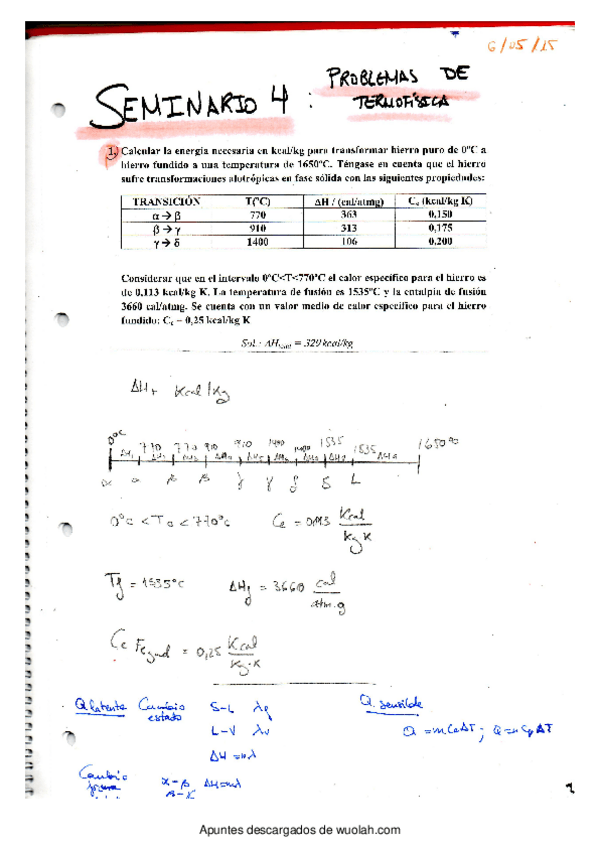 6/05/15
SEMINARIO 4 : PROBLEMAS DE
TERMOFÍSICA
1. Calcular la energía necesaria en kcal/kg para transformar hierro puro de 0ºC a
hierro fundido a una temperatura de 1650ºC. Téngase en cuenta que el hierro
sufre transformaciones alotrópicas en fase sólida con las siguientes propiedades:
TRANSICIÓN T(ºC) ΔH / (cal/atmg) Ce (kcal/kg K)
α → β 770 363 0,150
β → γ 910 313 0,175
γ → δ 1400 106 0,200
Considerar que en el intervalo 0ºC<T<770ºC el calor específico para el hierro es
de 0,113 kcal/kg K. La temperatura de fusión es 1535ºC y la entalpía de fusión
3660 cal/atmg. Se cuenta con un valor medio de calor específico para el hierro
fundido: Ce = 0,25 kcal/kg K
Sol.: ΔHtotal = 329 kcal/kg
ΔHT Kcal/Kg
0ºC 770 770 910 910 1400 1400 1535 1535 1650ºC
0ºC < Ta < 770ºC Ce = 0,113 Kcal/Kg K
Tf = 1535ºC ΔHf = 3660 cal/atm.g
Ce Fefund = 0,25 Kcal/Kg·K
Q latente Cambio estado S-L λf
L-V λv
ΔH = mλ
Cambio α-β ΔH=mλ
Q. sensible
Q = mCeΔT ;
Apuntes descargados de wuolah.com